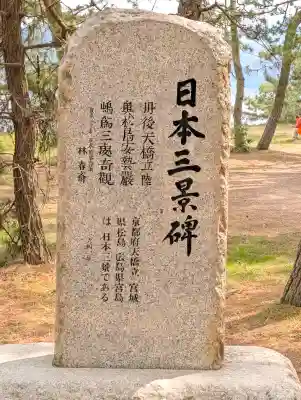 日本三景碑
丹後天橋立陸
奥松島安藝嚴
嶋爲三處奇觀
林春齋
京都府天橋立 宮城
県松島 広島県宮島
は 日本三景である